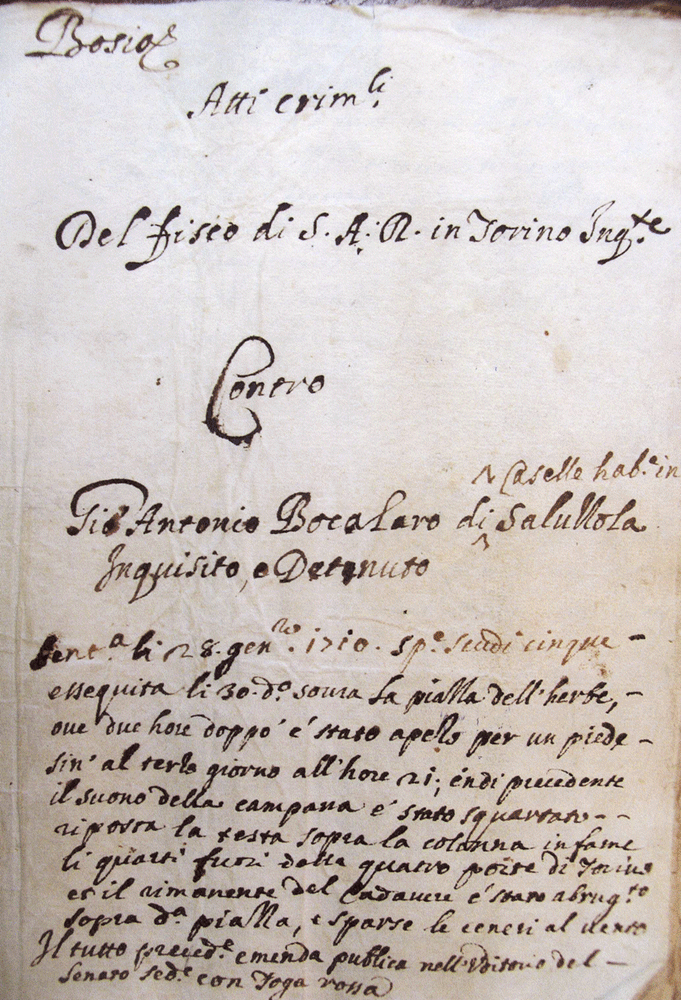 Bosio
Atti crim.li
Del fisco di S. A. R. in Torino Inq.te
Contro
Caselle hab.e in
Gio Antonio Bocalaro di Salussola
Inquisito, e Detenuto
Sent.a li 28. gen.ro 1710. sp.e scudi cinque -
essequita li 30. d.o soura la piassa dell'herbe, -
oue due hore doppo' é stato apeso per un piede -
sin' al terzo giorno all'hore 21; éndi precedente
il suono della campana é stato squartato - -
riposta la testa sopra la colonna infame
li quarti fuori delle quatro porte di Torino
et il rimanente del Cadauere é stato abrug.to
sopra d.a piassa, e sparse le ceneri al uento
Il tutto preced.e emenda publica nell'Uditorio del -
Senato sed.e con Toga rossa